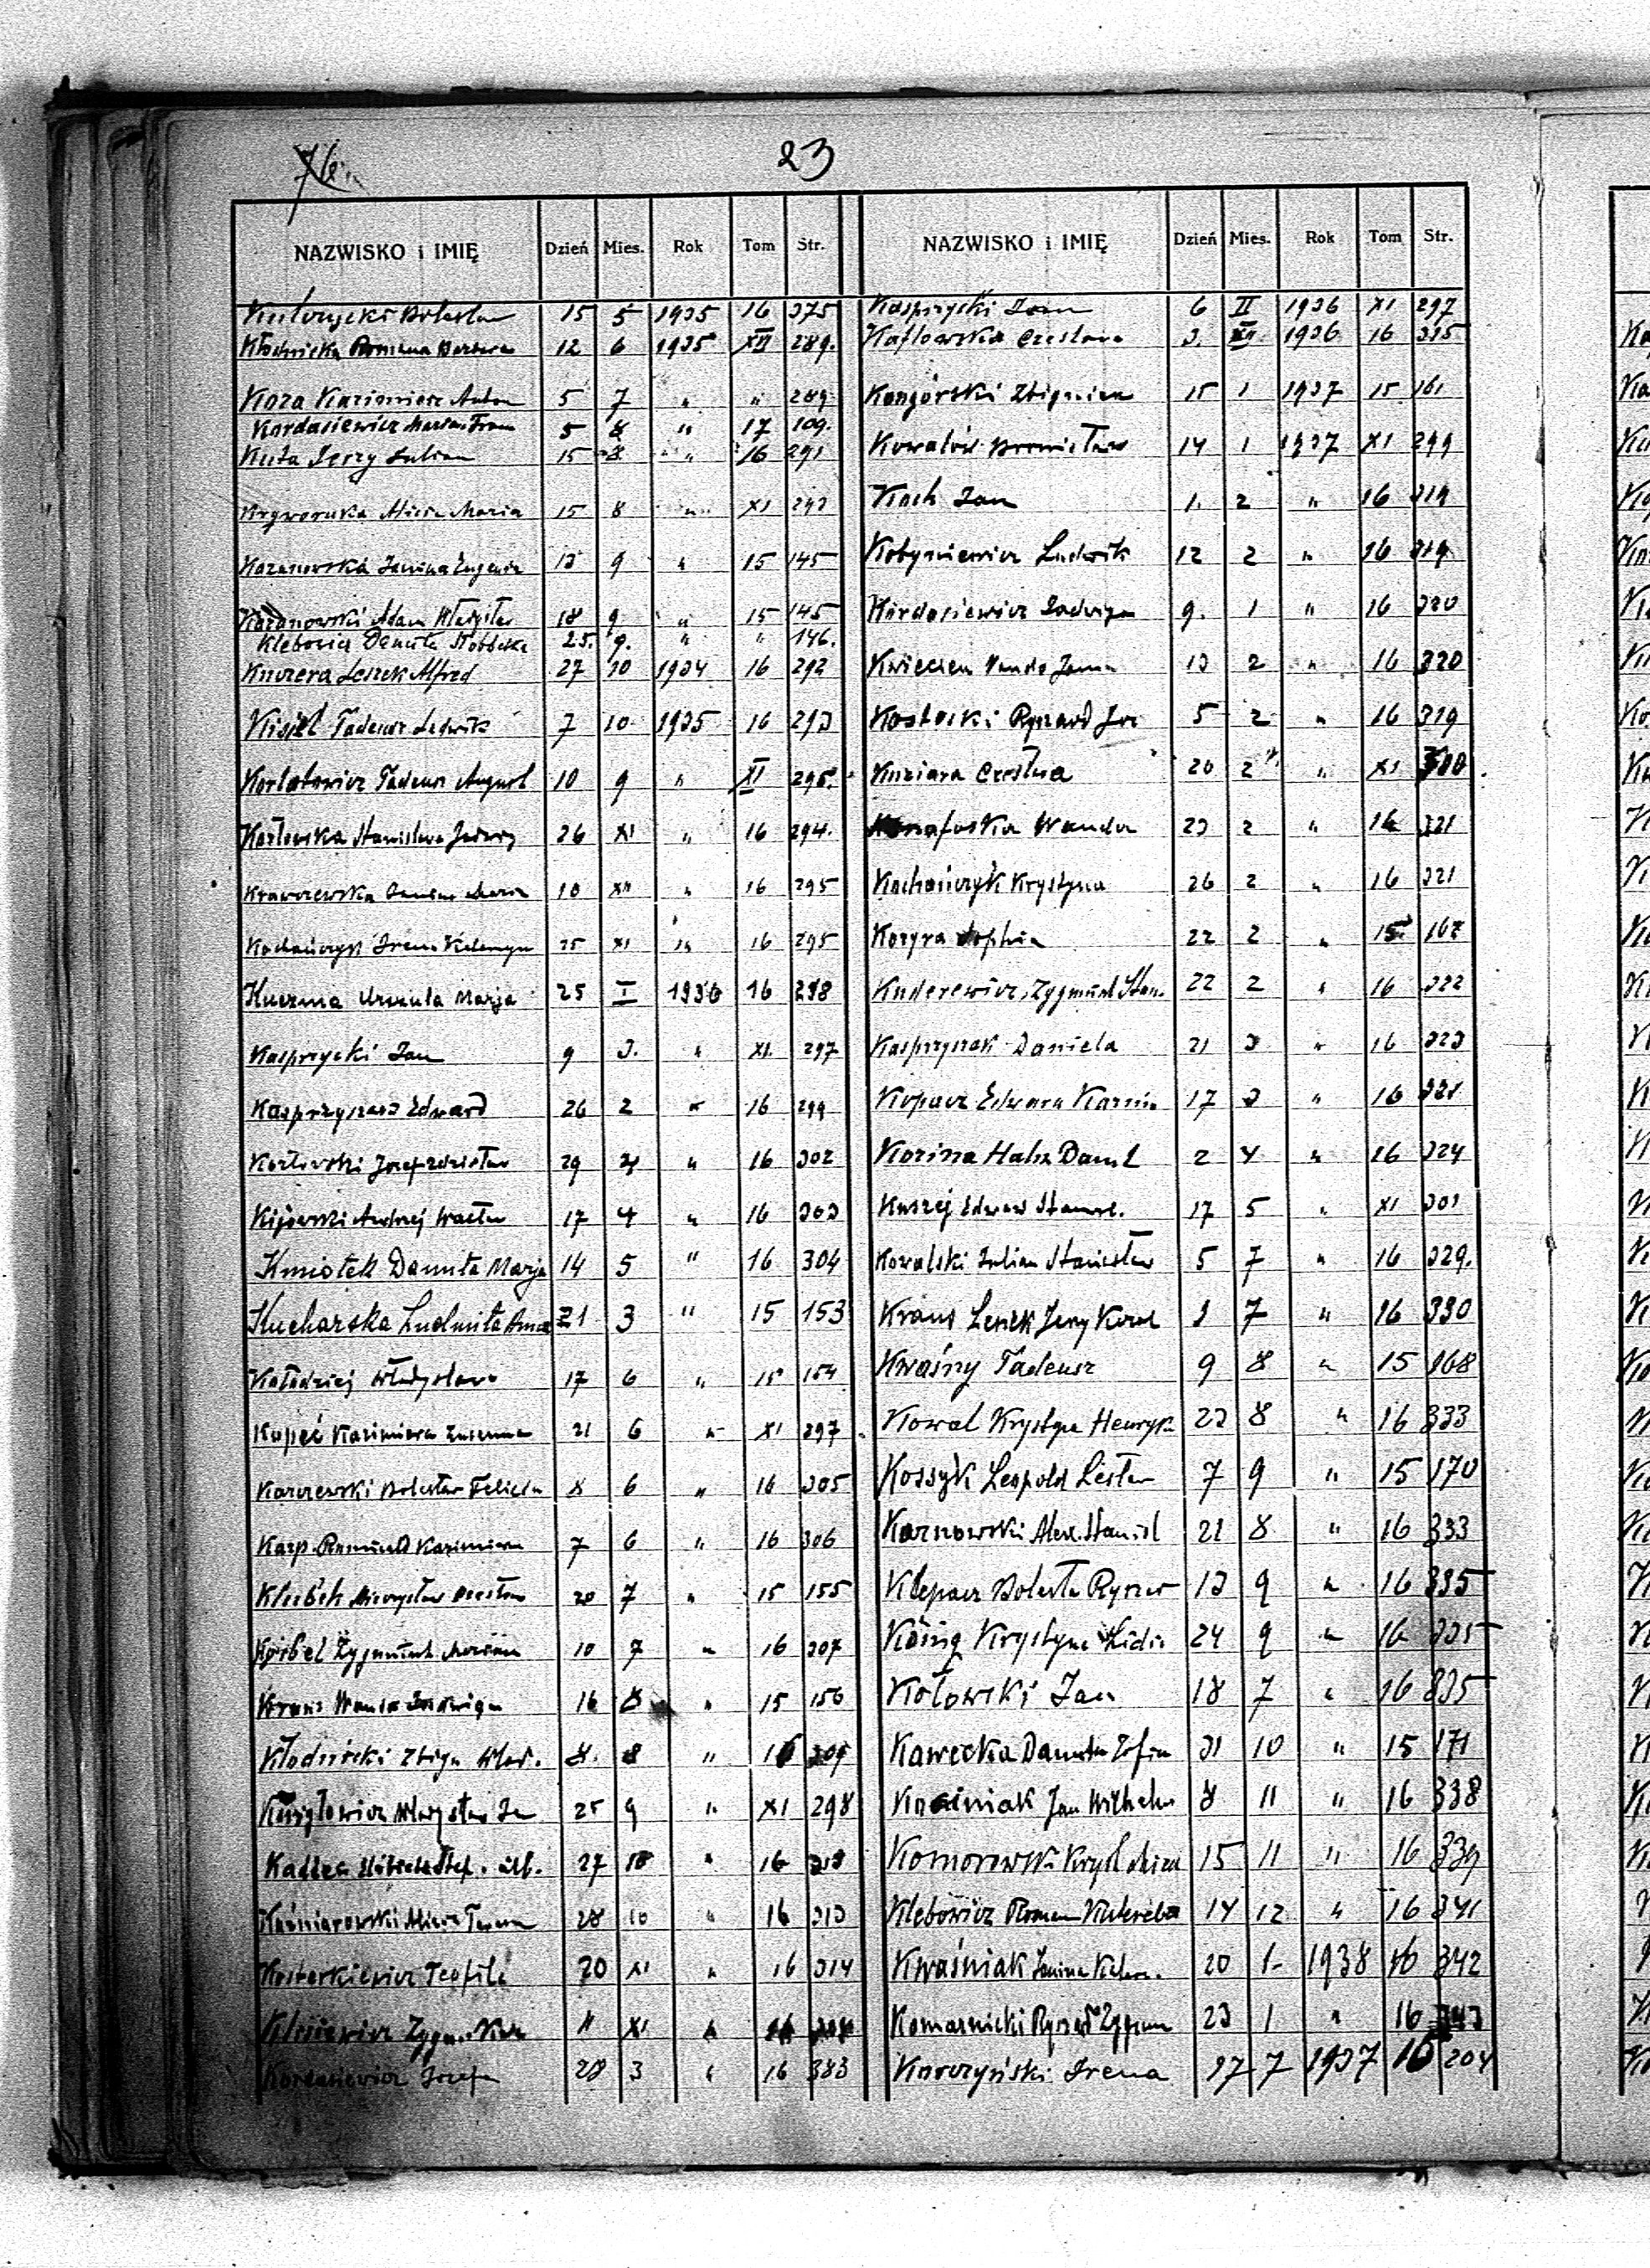 76.
23
NAZWISKO i IMIĘ Dzień Mies. Rok Tom Str. NAZWISKO i IMIĘ Dzień Mies. Rok Tom Str.
15 5 1935 16 375 Kasprzycki Jan 6 II 1936 XI 297
Kłodnicka Romana Barbara 12 6 1935 XII 289. Czesława 3. XII 1936 16 315
Koza Kazimierz Anton 5 7 " " 289 Zbigniew 15 1 1937 15 161
Kordasiewicz Marian Fran 5 8 " 17 109.
Kuta Jerzy Julian 15 8 " 16 291 Kowalów Bronisław 14 1 1937 XI 299
Alicia Maria 15 8 " XI 293 Koch Jan 1. 2 " 16 319
Kazanowska Janina Eugenia 13 9 " 15 145 Ludwik 12 2 " 16 319
Kazanowski Adam Władysław 18 9 " 15 145 Kordasiewicz Jadwiga 9. 1 " 16 320
Klebowicz Danuta 25. 9. " " 146.
Kuczera Leszek Alfred 27 10 1934 16 292 Kwiecień Wanda Janina 13 2 " 16 320
Kisiel Tadeusz Ludwik 7 10 1935 16 293 Ryszard Jer 5 2 " 16 319
Tadeusz August 10 9 " XI 295. Kuziara Czesława 20 2 " XI 300
Kozłowska Stanisława Jadwig 26 XI " 16 294. Wanda 23 2 " 16 321
Krawczewska Maria 10 XII " 16 295 Kochańczyk Krystyna 26 2 " 16 321
Kochańczyk Irena 25 XI " 16 295 Kozyra Sophia 22 2 " 15 162
Kuczma Urszula Marja 25 I 1936 16 298 Kuderewicz Zygmunt Stan. 22 2 " 16 322
Kasprzycki Jan 9 3. " XI. 297 Kasprzyszak Daniela 21 3 " 16 323
Edward 26 2 " 16 299 Kopacz Edward Kazim 17 3 " 16 321
Kozłowski Józef Zdzisław 29 4 " 16 302 Kozina Halin Danut 2 4 " 16 324
Kijowski Andrzej Wacław 17 4 " 16 303 Kuszej Edward Stanisł. 17 5 " XI 301
Kmiotek Danuta Marja 14 5 " 16 304 Kowalski Julian Stanisław 5 7 " 16 329.
Kucharska Ludmiła Anna 21 3 " 15 153 Kraus Leszek Jerzy Karol 3 7 " 16 330
Kołodziej Władysława 17 6 " 15 154 Kwaśny Tadeusz 9 8 " 15 168
Kupeć Kazimiera Zuzanna 21 6 " XI 297 Kowal Krystyna Henryk 23 8 " 16 333
Karczewski Bolesław Felicja 8 6 " 16 305 Kossyk Leopold Lesław 7 9 " 15 170
Karp Romuald Kazimierz 7 6 " 16 306 Karnowski Alex. Stanisł 21 8 " 16 333
Mieczysław Wiesław 20 7 " 15 155 Klepacz Bolesła Ryszar 13 9 " 16 335
Zygmunt Marian 10 7 " 16 307 König Krystyna Lidia 24 9 " 16 335
Kraus Wanda Jadwiga 16 8 " 15 156 Kołowski Jan 18 7 " 16 335
Kłodnicki Zbign. Wład. 8. 8 " 16 309 Kawecka Danuta Zofia 31 10 " 15 171
Władysław Jan 25 9 " XI 298 Koźiniak Jan Wilhelm 8 11 " 16 338
Kadłec 27 10 " 16 313 Komorowski 15 11 " 16 339
Kaźniarowski Alicia Teresa 28 10 " 16 313 Klebowicz Roman 14 12 " 16 341
Kosterkiewicz Teofila 20 XI " 16 314 Kwaśniak Janina 20 1 1938 16 342
Zygm. 11 XI " Komarnicki Ryszard Zygmun 23 1 " 16 343
Kordasiewicz Józefa 28 3 " 16 383 Korczyński Irena 27 7 1937 16 204